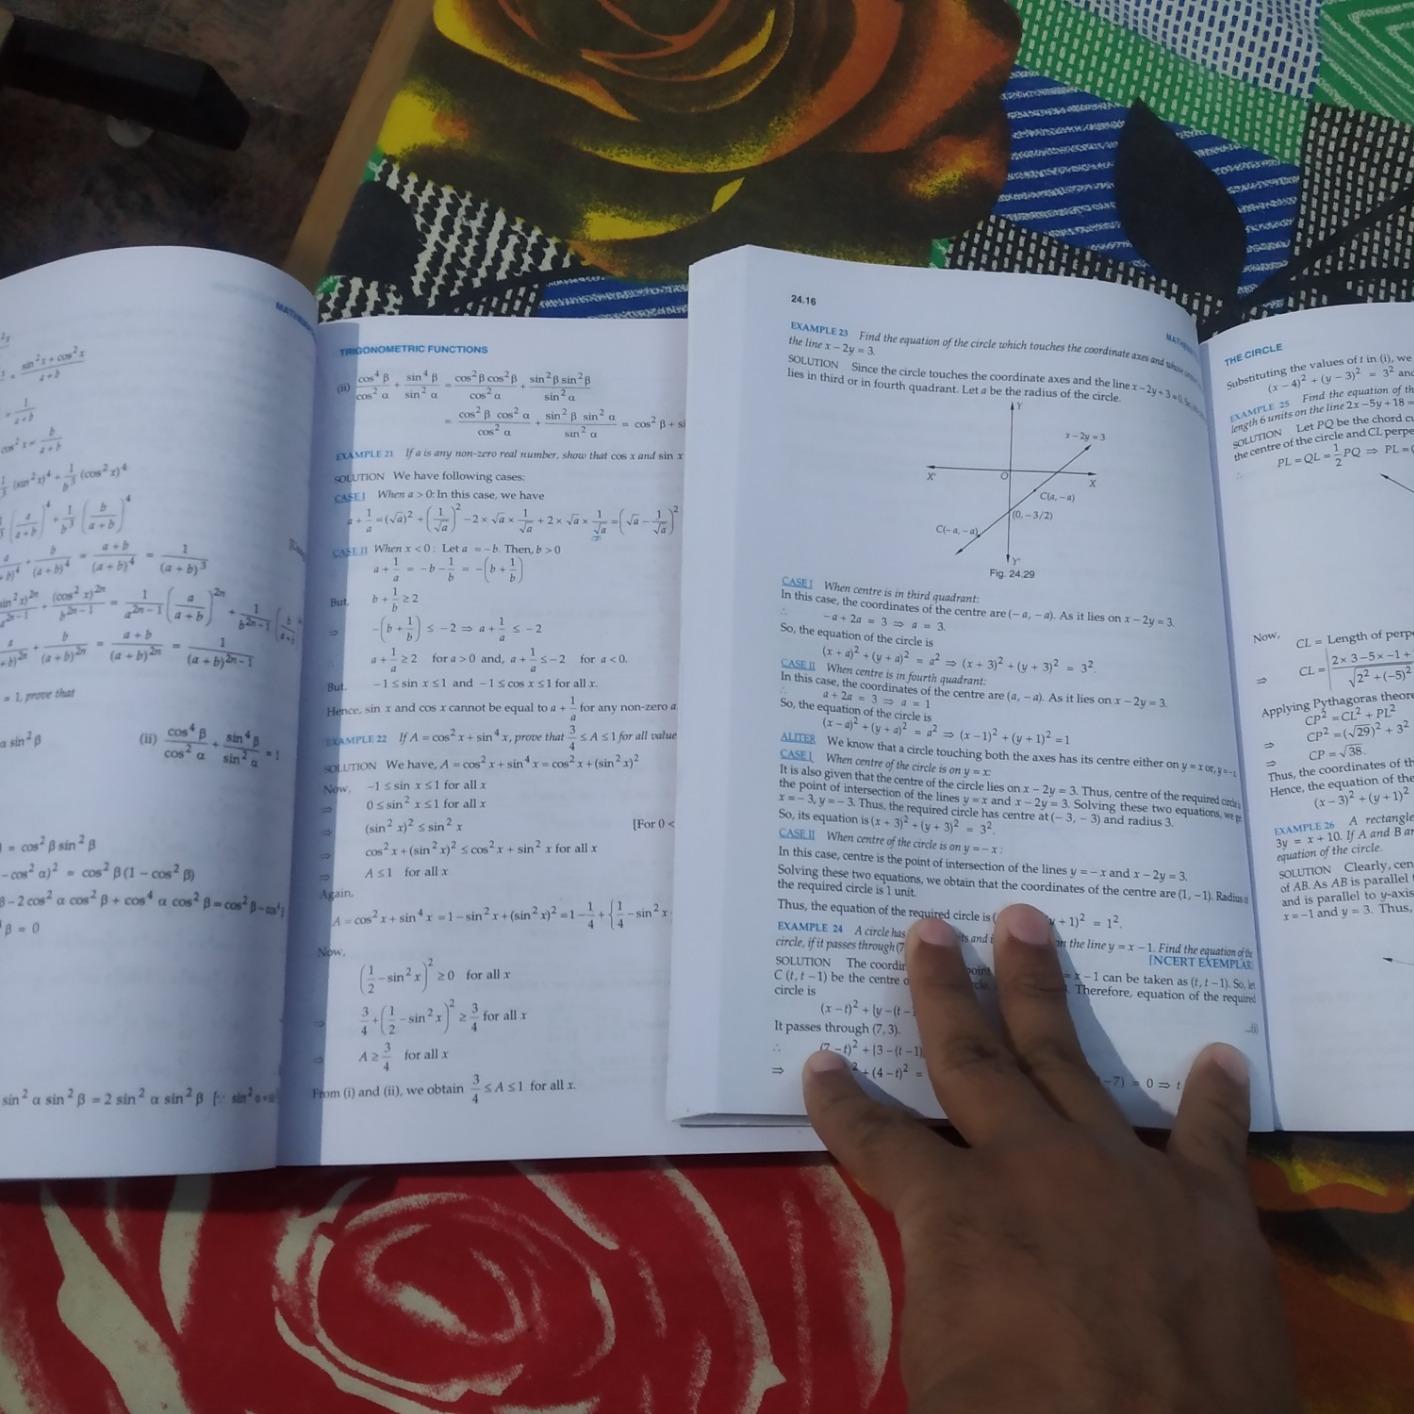 MATHEM
sin²x + cos²x / a+b
= 1/a+b
cos²x = b/a+b
= 1, prove that
(ii) cos⁴β/cos²α + sin⁴β/sin²α = 1
= cos²β sin²β
- cos²α)² = cos²β (1 - cos²β)
β = 0
sin²α sin²β = 2 sin²α sin²β
TRIGONOMETRIC FUNCTIONS
(ii) cos⁴β/cos²α + sin⁴β/sin²α = cos²β cos²β/cos²α + sin²β sin²β/sin²α
= cos²β cos²α/cos²α + sin²β sin²α/sin²α = cos²β + si
EXAMPLE 21 If a is any non-zero real number, show that cos x and sin x
SOLUTION We have following cases:
CASE I When a > 0: In this case, we have
a + 1/a = (√a)² + (1/√a)² - 2 × √a × 1/√a + 2 × √a × 1/√a = (√a - 1/√a)²
CASE II When x < 0 : Let a = -b. Then, b > 0
a + 1/a = -b - 1/b = -(b + 1/b)
But, b + 1/b ≥ 2
⇒ -(b + 1/b) ≤ -2 ⇒ a + 1/a ≤ -2
∴ a + 1/a ≥ 2 for a > 0 and, a + 1/a ≤ -2 for a < 0.
But, -1 ≤ sin x ≤ 1 and -1 ≤ cos x ≤ 1 for all x.
Hence, sin x and cos x cannot be equal to a + 1/a for any non-zero a
EXAMPLE 22 If A = cos²x + sin⁴x, prove that 3/4 ≤ A ≤ 1 for all value
SOLUTION We have, A = cos²x + sin⁴x = cos²x + (sin²x)²
Now, -1 ≤ sin x ≤ 1 for all x
⇒ 0 ≤ sin²x ≤ 1 for all x
⇒ (sin²x)² ≤ sin²x [For 0 <
⇒ cos²x + (sin²x)² ≤ cos²x + sin²x for all x
⇒ A ≤ 1 for all x
Again,
A = cos²x + sin⁴x = 1 - sin²x + (sin²x)² = 1 - 1/4 + {1/4 - sin²x
Now,
(1/2 - sin²x)² ≥ 0 for all x
⇒ 3/4 + (1/2 - sin²x)² ≥ 3/4 for all x
⇒ A ≥ 3/4 for all x
From (i) and (ii), we obtain 3/4 ≤ A ≤ 1 for all x.
24.16
EXAMPLE 23 Find the equation of the circle which touches the coordinate axes and
the line x - 2y = 3.
SOLUTION Since the circle touches the coordinate axes and the line x - 2y + 3 = 0.
lies in third or in fourth quadrant. Let a be the radius of the circle.
Y
x - 2y = 3
X' O X
C(a, -a)
(0, -3/2)
C(-a, -a)
Y'
Fig. 24.29
CASE I When centre is in third quadrant:
In this case, the coordinates of the centre are (-a, -a). As it lies on x - 2y = 3.
∴ -a + 2a = 3 ⇒ a = 3.
So, the equation of the circle is
(x + a)² + (y + a)² = a² ⇒ (x + 3)² + (y + 3)² = 3².
CASE II When centre is in fourth quadrant:
In this case, the coordinates of the centre are (a, -a). As it lies on x - 2y = 3.
∴ a + 2a = 3 ⇒ a = 1
So, the equation of the circle is
(x - a)² + (y + a)² = a² ⇒ (x - 1)² + (y + 1)² = 1
ALITER We know that a circle touching both the axes has its centre either on y = x or, y = -x
CASE I When centre of the circle is on y = x:
It is also given that the centre of the circle lies on x - 2y = 3. Thus, centre of the required circle is
the point of intersection of the lines y = x and x - 2y = 3. Solving these two equations, we get
x = -3, y = -3. Thus, the required circle has centre at (-3, -3) and radius 3.
So, its equation is (x + 3)² + (y + 3)² = 3².
CASE II When centre of the circle is on y = -x:
In this case, centre is the point of intersection of the lines y = -x and x - 2y = 3.
Solving these two equations, we obtain that the coordinates of the centre are (1, -1). Radius
the required circle is 1 unit.
Thus, the equation of the required circle is ( y + 1)² = 1².
EXAMPLE 24 A circle has on the line y = x - 1. Find the equation of the
circle, if it passes through (7 [NCERT EXEMPLAR]
SOLUTION The coordin point = x - 1 can be taken as (t, t - 1). So, let
C (t, t - 1) be the centre o Therefore, equation of the required
circle is
(x - t)² + {y - (t - 1
It passes through (7, 3).
∴ (7 - t)² + {3 - (t - 1)
⇒ + (4 - t)² = - 7) = 0 ⇒ t
THE CIRCLE
Substituting the values of t in (i), we
(x - 4)² + (y - 3)² = 3² and
EXAMPLE 25 Find the equation of th
length 6 units on the line 2x - 5y + 18 =
SOLUTION Let PQ be the chord c
the centre of the circle and CL perpe
∴ PL = QL = 1/2 PQ ⇒ PL =
Now, CL = Length of perp
⇒ CL = |2 × 3 - 5 × -1 + / √2² + (-5)²
Applying Pythagoras theore
CP² = CL² + PL²
⇒ CP² = (√29)² + 3²
⇒ CP = √38.
Thus, the coordinates of th
Hence, the equation of the
(x - 3)² + (y + 1)²
EXAMPLE 26 A rectangle
3y = x + 10. If A and B ar
equation of the circle.
SOLUTION Clearly, cen
of AB. As AB is parallel
and is parallel to y-axis
x = -1 and y = 3. Thus,